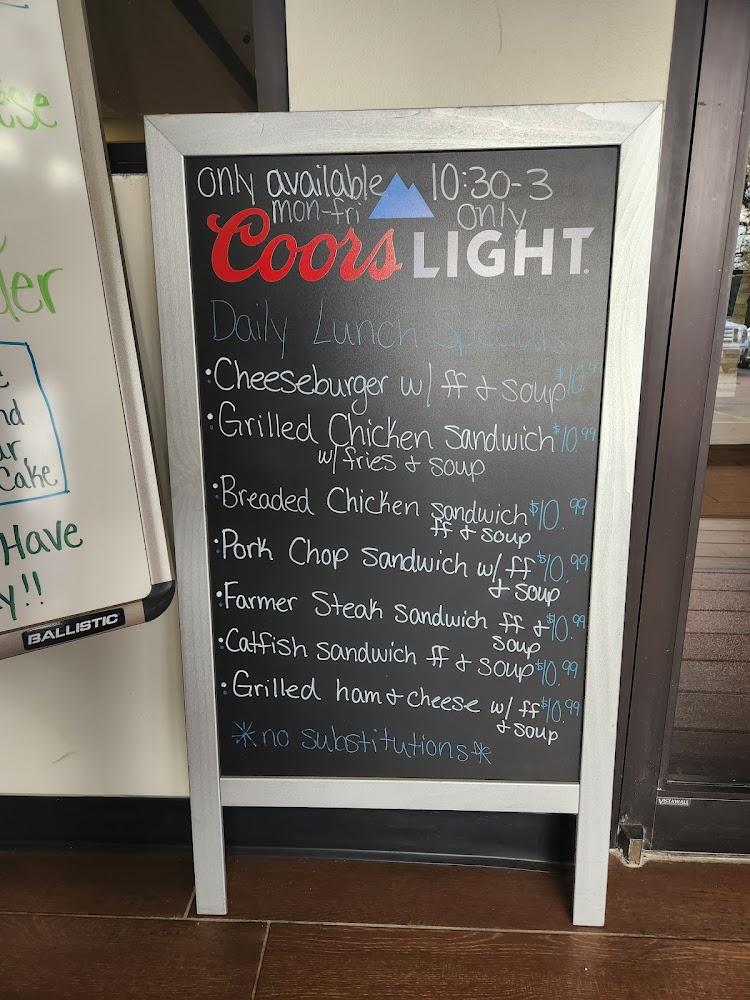 ese
der
nd
ur
Cake
Have
y!!
BALLISTIC
only available 10:30-3
mon-fri only
Coors LIGHT
Daily Lunch Specials
•Cheeseburger w/ ff & soup $10.99
•Grilled Chicken Sandwich $10.99
w/ fries & soup
•Breaded Chicken sandwich $10.99
ff & soup
•Pork Chop Sandwich w/ ff $10.99
& soup
•Farmer Steak Sandwich ff & $10.99
soup
•Catfish sandwich ff & soup $10.99
•Grilled ham & cheese w/ ff $10.99
& soup
*no substitutions*
VISTAWALL